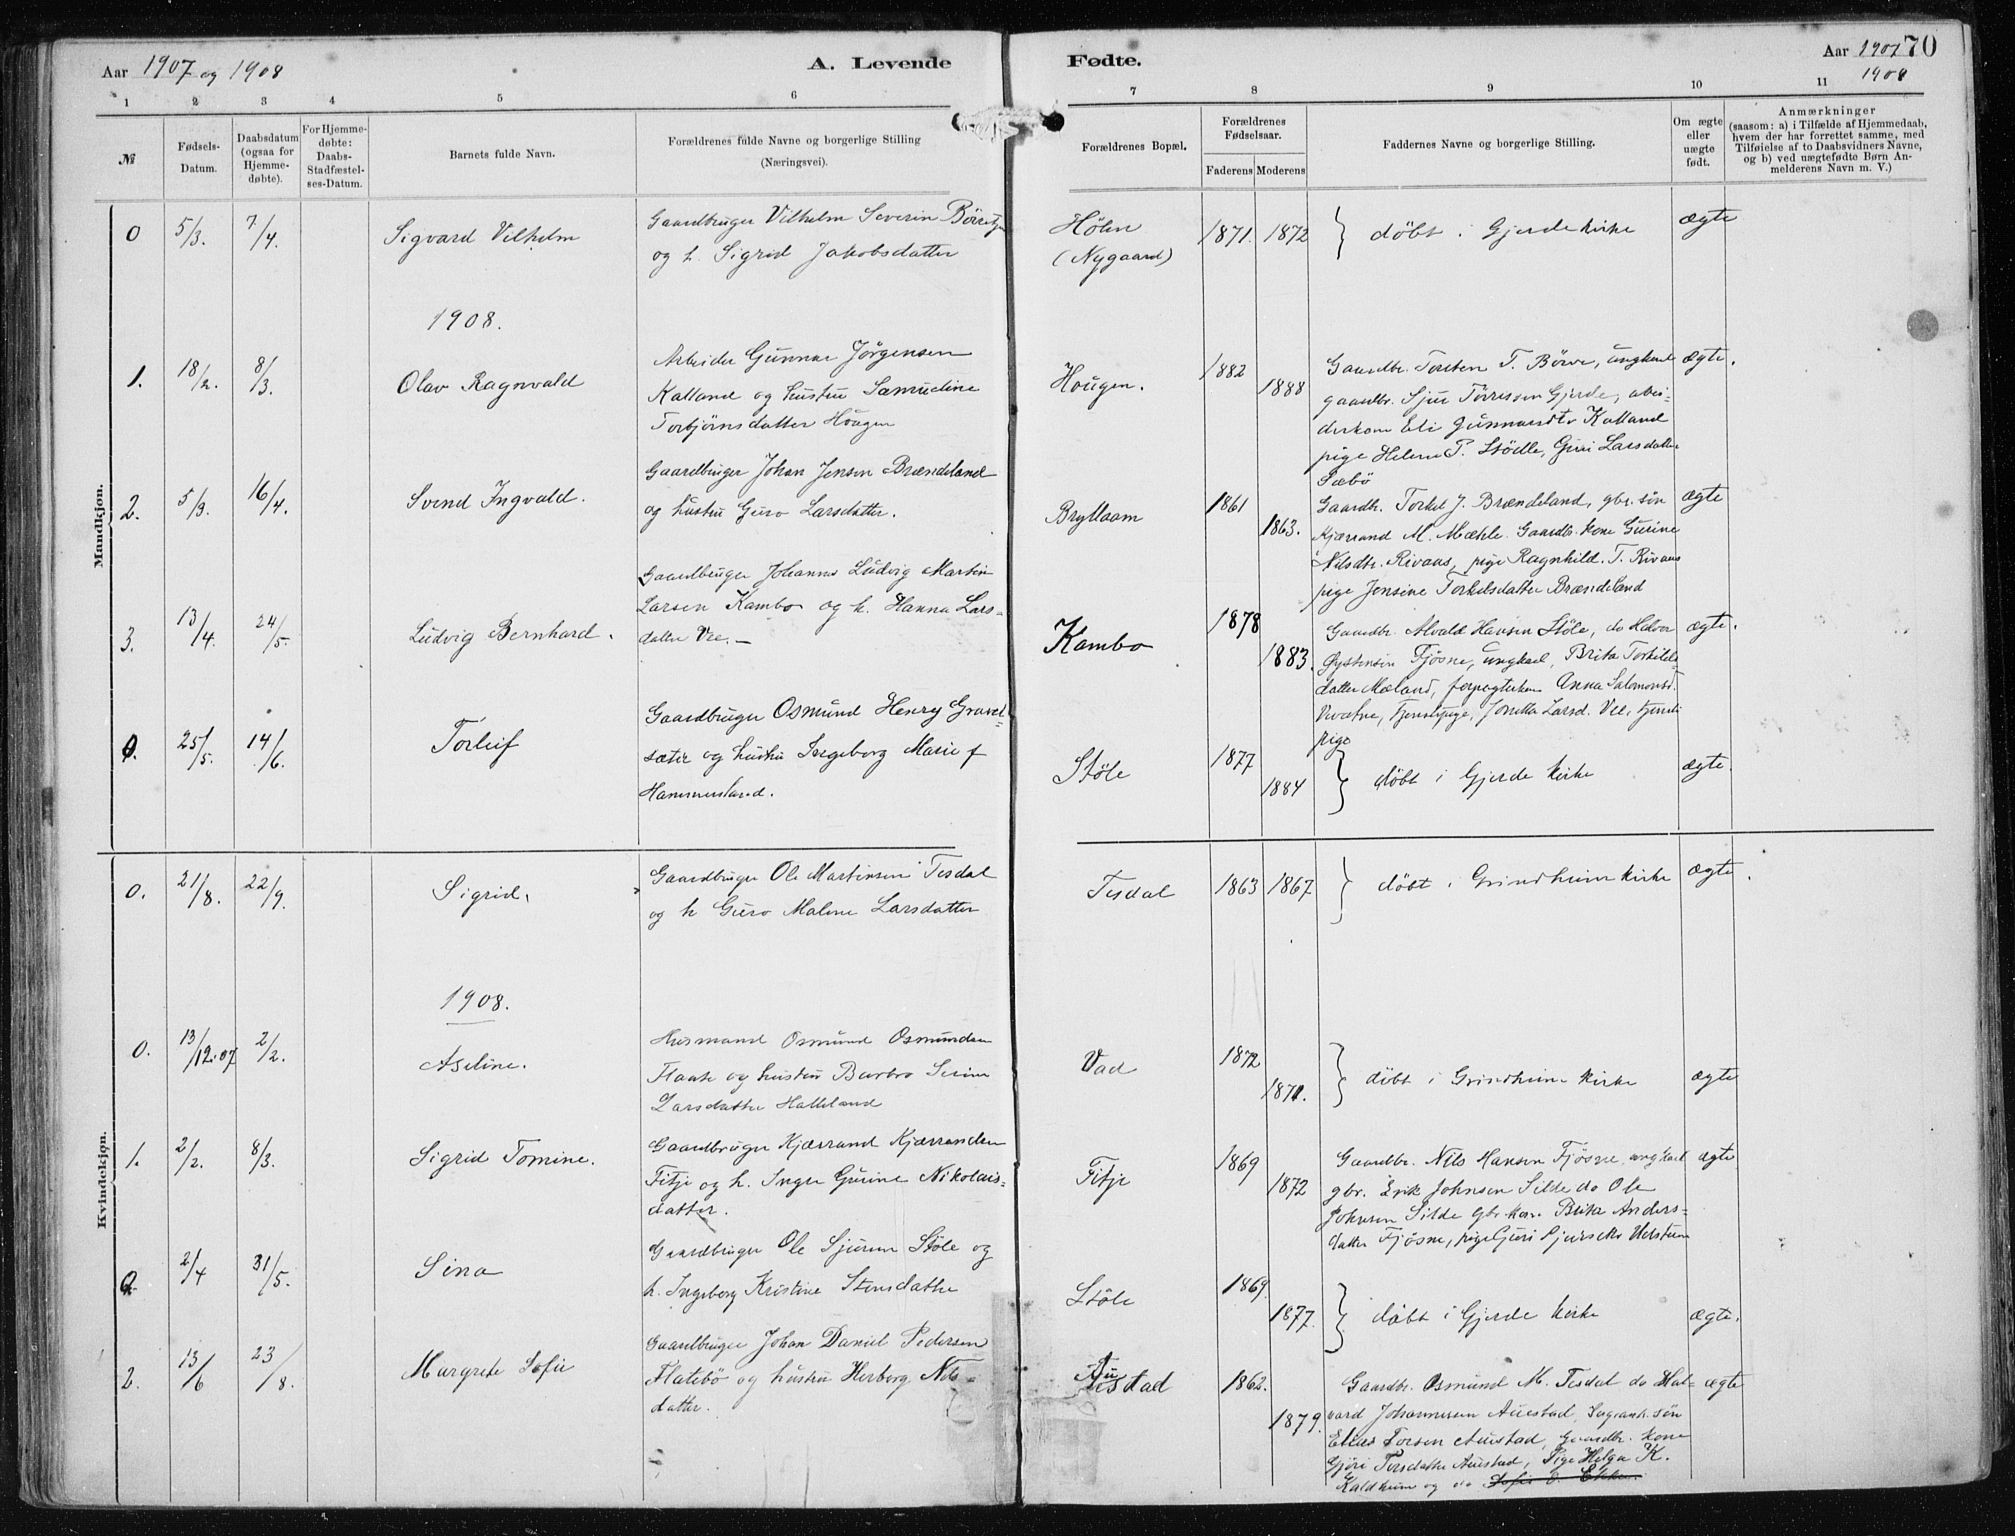 Aar 1907 og 1908
A. Levende
Fødte.
Aar 1907 70
1908
1 2 3 4 5 6 7 8 9 10 11
№
Fødsels-
Datum.
Daabsdatum
(ogsaa for
Hjemme-
døbte).
For Hjemme-
døbte:
Daabs-
Stadfæstel-
ses-Datum.
Barnets fulde Navn.
Forældrenes fulde Navne og borgerlige Stilling
(Næringsvei).
Forældrenes Bopæl.
Forældrenes
Fødselsaar.
Faderens Moderens
Faddernes Navne og borgerlige Stilling.
Om ægte
eller
uægte
født.
Anmærkninger
(saasom: a) i Tilfælde af Hjemmedaab,
hvem der har forrettet samme, med
Tilføielse af to Daabsvidners Navne,
og b) ved uægtefødte Børn An-
melderens Navn m. V.)
Mandkjøn.
0 5/3. 7/4. Sigvard Vilhelm
Gaardbruger Vilhelm Severin
og h. Sigrid Jakobsdatter
Hølen
(Nygaard)
1871. 1872 } døbt i Gjerde kirke ægte
1908.
1. 18/2. 8/3. Olav Ragnvald
Arbeider Gunnar Jørgensen
Kalland og hustru Samueline
Torbjørnsdatter Hougen
Hougen. 1882 1888
Gaardbr. Torsten T. Børve, ungkarl ægte.
gaardbr. Sjur Tørressen Gjerde, abei-
derkone Eli Gunnarsdtr Kalland
pige Helene P. Stødle, Guri Larsdatter
Sæbø
2. 5/3. 16/4. Svend Ingvald.
Gaardbruger Johan Jensen Brændeland
og hustru Guro Larsdatter.
Bryllaam 1861 1863.
Gaardbr. Torkel J. Brændeland, gbr. søn ægte
Kjærrand M. Mæhle. Gaardb. kone Gurine
Nilsdtr. Rivaas, pige Ragnhild. T. Rivaas
pige Jensine Torkelsdatter Brændeland
3. 13/4. 24/5. Ludvig Bernhard.
Gaardbruger Johannes Ludvig Martin
Larsen Kambo og h. Hanna Lars-
datter Vee.—
Kambo 1878 1883.
Gaardbr. Alvald Hansen Støle, do Halvor ægte.
Øystensen Fjøsne, ungkarl, Brita Torkilds-
datter Mæland, Anna Salomonsd.
tjenstepige, Jonetta Larsd. Vee, tjeneste
pige
0. 25/5. 14/6. Torleif
Gaardbruger Osmund Henry Gravel-
sæter og hustru Ingeborg Marie f
Hammersland.
Støle 1877 1884 } døbt i Gjerde kirke ægte.
Kvindekjøn.
0. 21/8. 22/9. Sigrid.
Gaardbruger Ole Martinsen Tesdal
og h Guro Malene Larsdatter
Tesdal 1863 1867. } døbt i Grindheim kirke ægte.
1908.
0. 13/12.07 2/2. Aseline.
Husmand Osmund Osmundsen
Flaate og hustru Barbro Serine
Larsdatter Halleland
Vad 1872 1870. } døbt i Grindheim kirke ægte
1. 2/2. 8/3. Sigrid Tomine.
Gaardbruger Kjærrand Kjærrandsen
Fitje og h. Inger Gurine Nikolais-
datter.
Fitje 1869 1872
Gaardbr. Nils Hansen Fjøsne, ungkarl ægte
gbr. Erik Johnsen Silde do Ole
Johnsen Silde gbr kone Brita Anders-
datter Fjøsne, pige Guri Sjursdtr
0. 2/4 31/5. Sina
Gaardbruger Ole Sjursen Støle og
h. Ingeborg Kristine Stensdatter
Støle 1869. 1877. } døbt i Gjerde kirke ægte.
2. 13/6 23/8. Margrete Sofie
Gaardbruger Johan Daniel Pedersen
Flatebø og hustru Herborg Nils-
datter.
Austad 1862. 1879.
Gaardbr. Osmund M. Tesdal do Hal- ægte
vard Johannesen Austad, søn
Elias Torsen Austad, Gaardbr. kone
Gjøri Torsdatter Austad, Pige Helga K.
Kaldheim og do Sofie